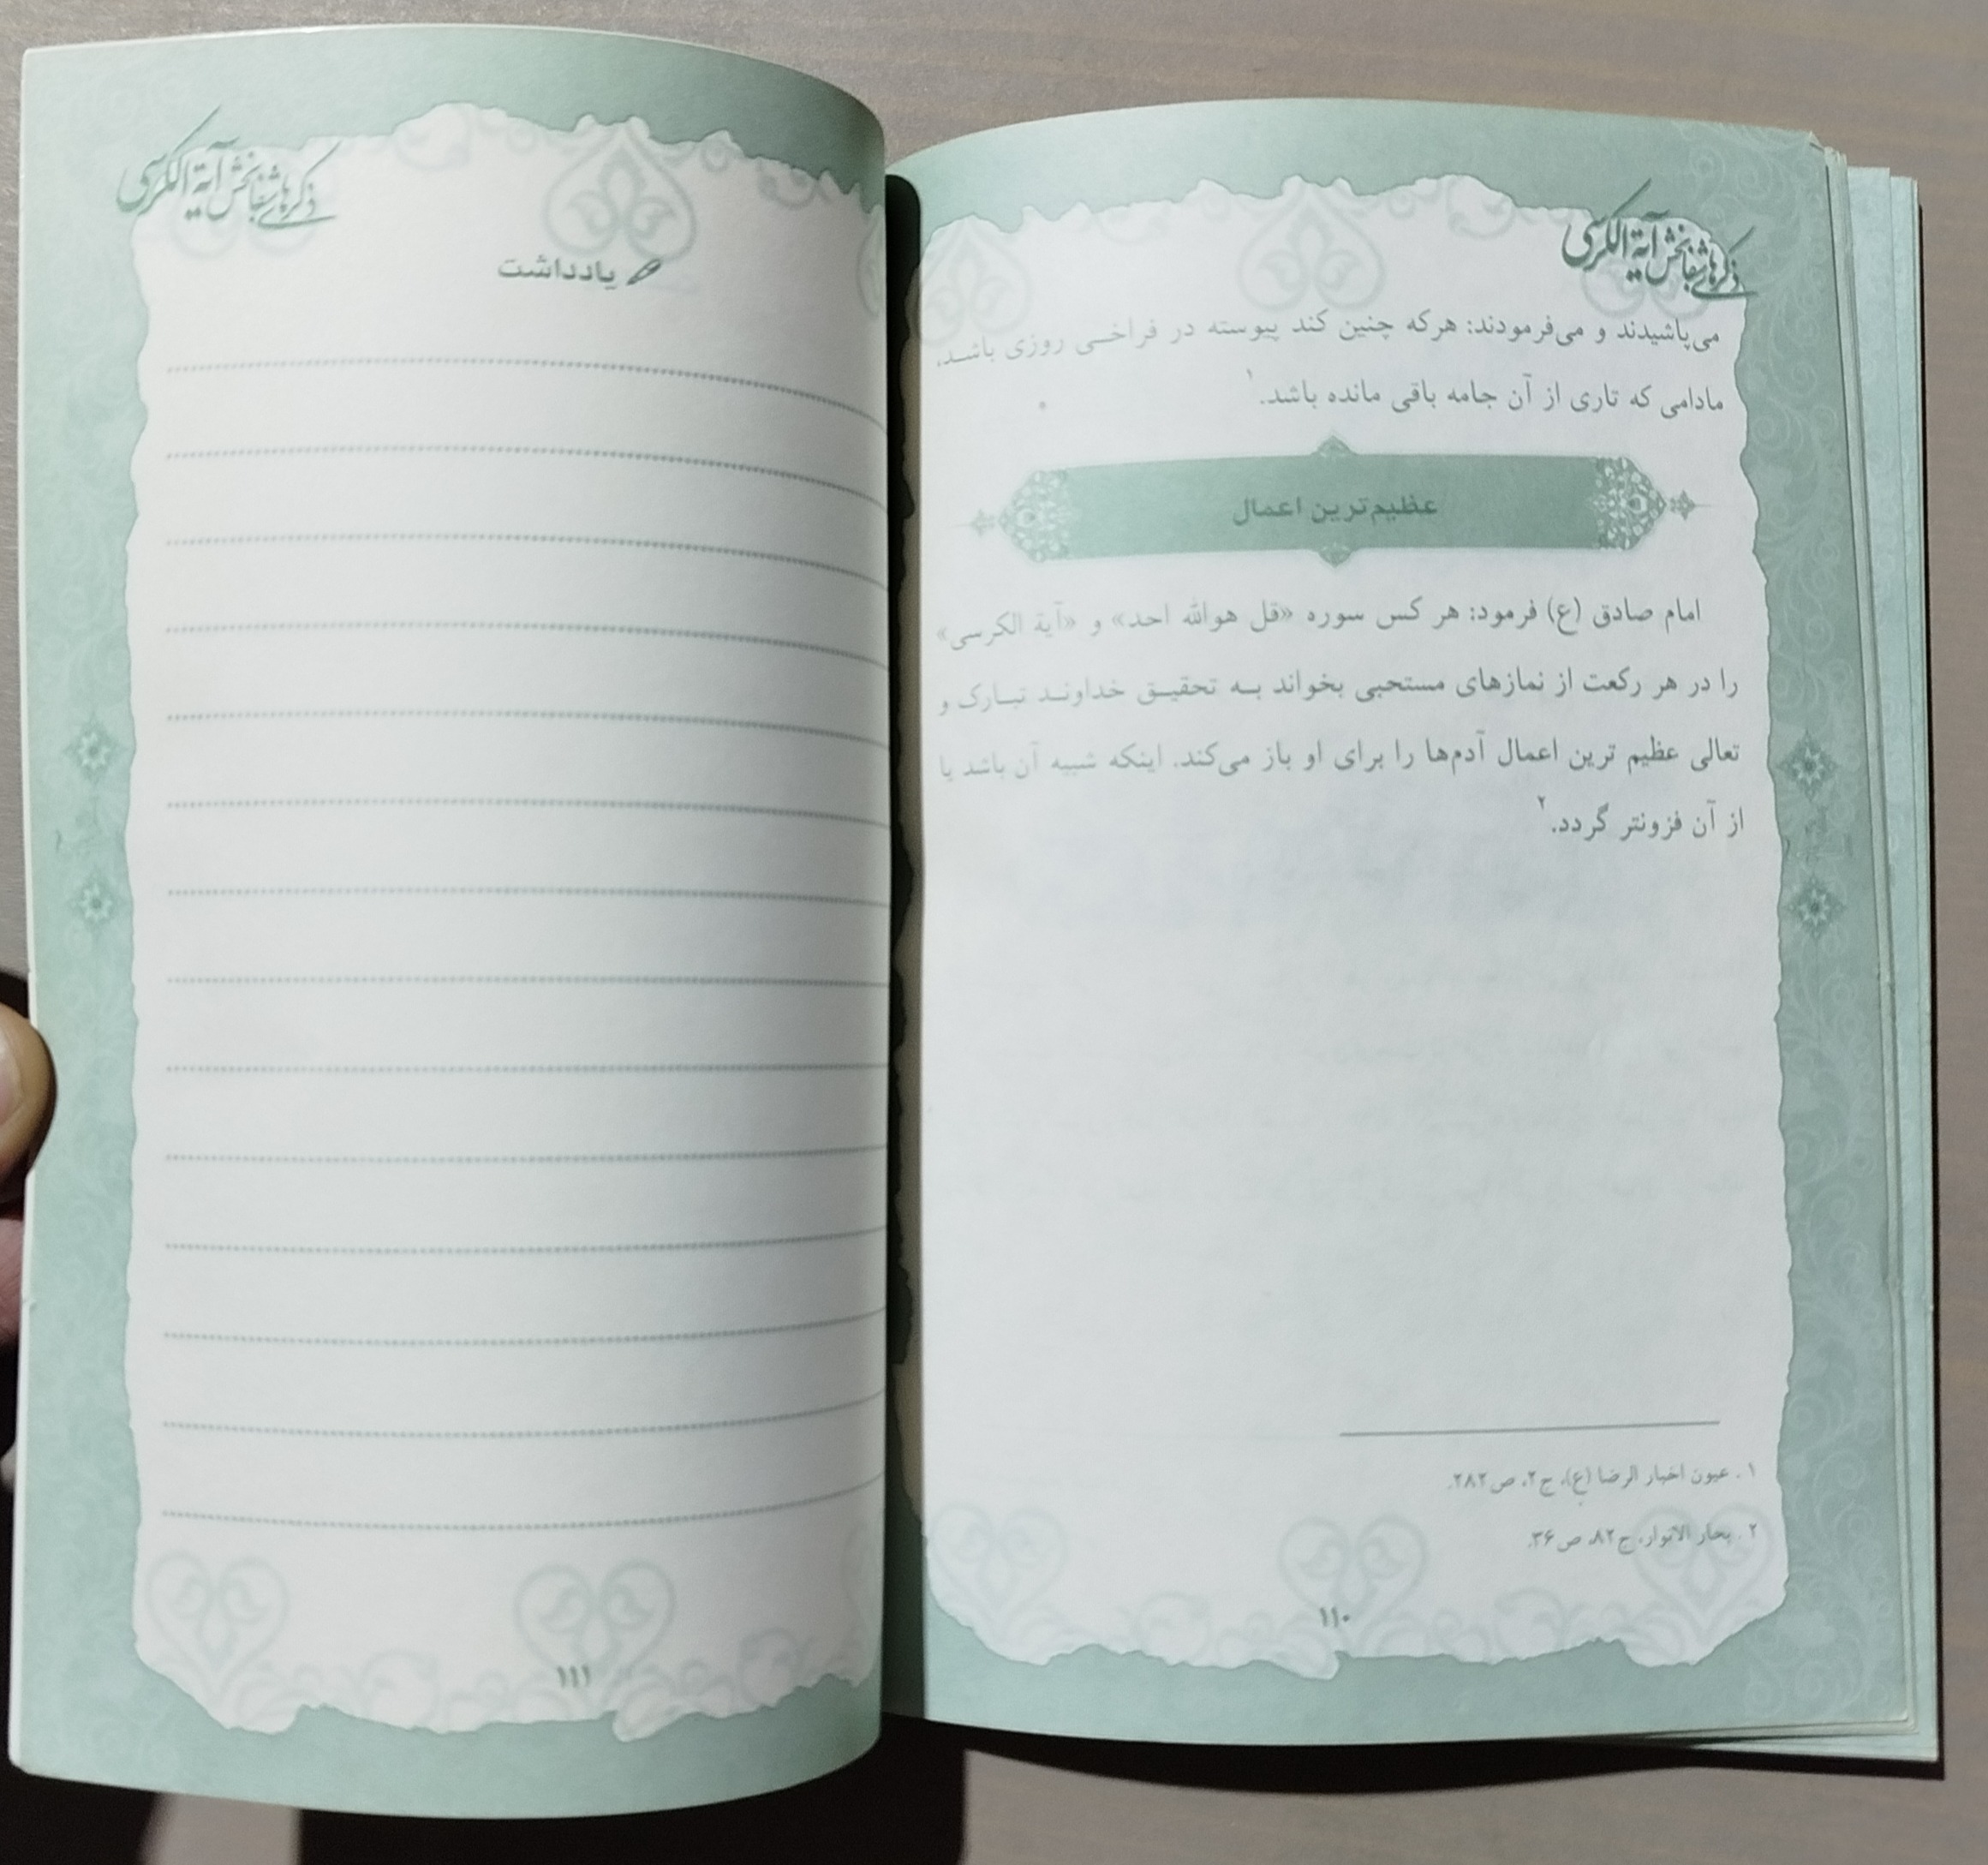 ذکرهای شفابخش آیة الکرسی
می‌پاشیدند و می‌فرمودند: هرکه چنین کند پیوسته در فراخی روزی باشد،
مادامی که تاری از آن جامه باقی مانده باشد.۱
عظیم‌ترین اعمال
امام صادق (ع) فرمود: هر کس سوره «قل هوالله احد» و «آیة الکرسی»
را در هر رکعت از نمازهای مستحبی بخواند به تحقیق خداوند تبارک و
تعالی عظیم ترین اعمال آدم‌ها را برای او باز می‌کند. اینکه شبیه آن باشد یا
از آن فزونتر گردد.۲
۱ . عیون اخبار الرضا (ع)، ج۲، ص۲۸۲.
۲ . بحار الانوار، ج۸۲، ص۳۶.
۱۱۰
ذکرهای شفابخش آیة الکرسی
یادداشت
۱۱۱